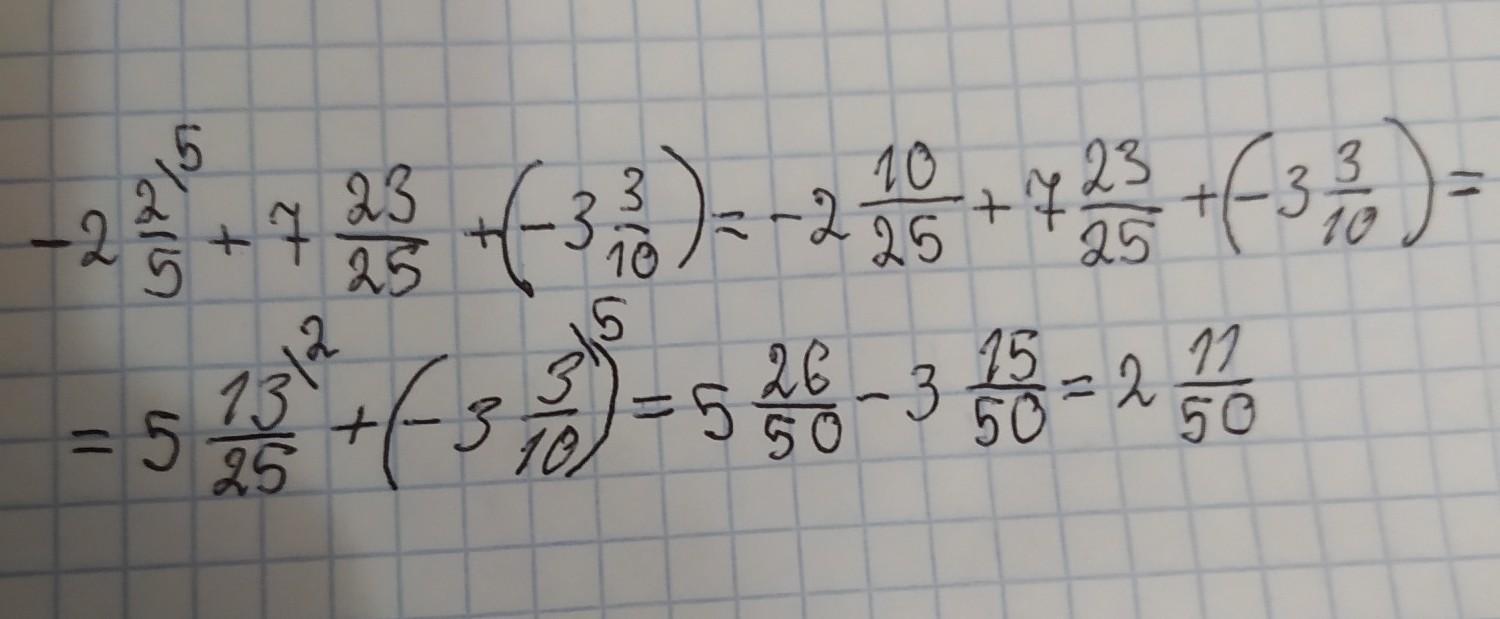 -2 2/5 \5 + 7 23/25 + (-3 3/10) = -2 10/25 + 7 23/25 + (-3 3/10) =
= 5 13/25 \2 + (-3 3/10 \5) = 5 26/50 - 3 15/50 = 2 11/50